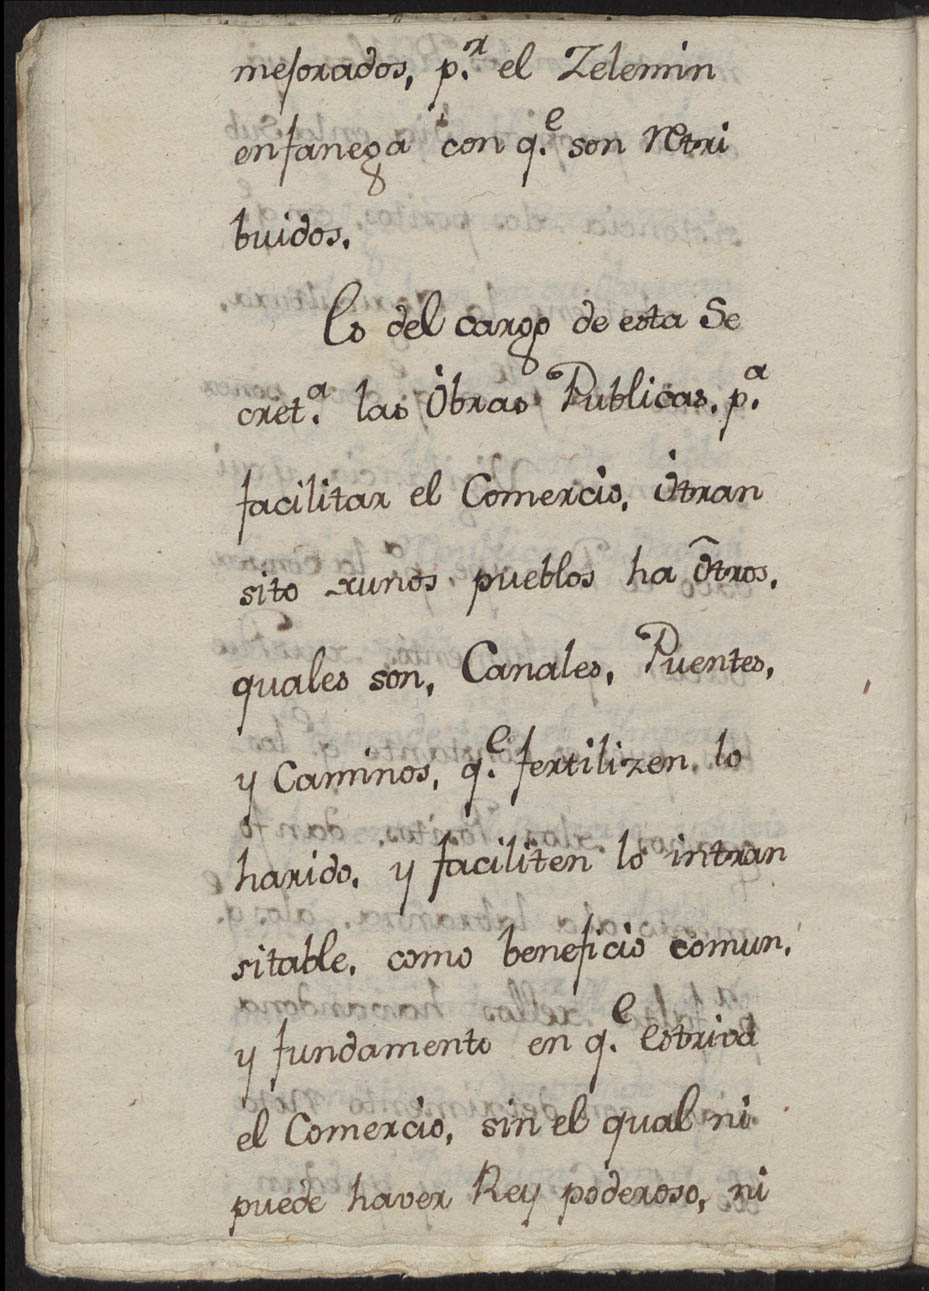 mejorados, p.r el Zelemin
enfanega con q.e son retri
buidos.
Es del cargo de esta Se
cret.a las Obras Publicas, p.a
facilitar el Comercio, ó tran
sito xunos pueblos ha ótros,
quales son, Canales, Puentes,
y Caminos, q.e fertilizen, lo
harido, y faciliten lo intran
sitable, como beneficio comun,
y fundamento en q.e estriva
el Comercio, sin el qual ni
puede haver Rey poderoso, ni